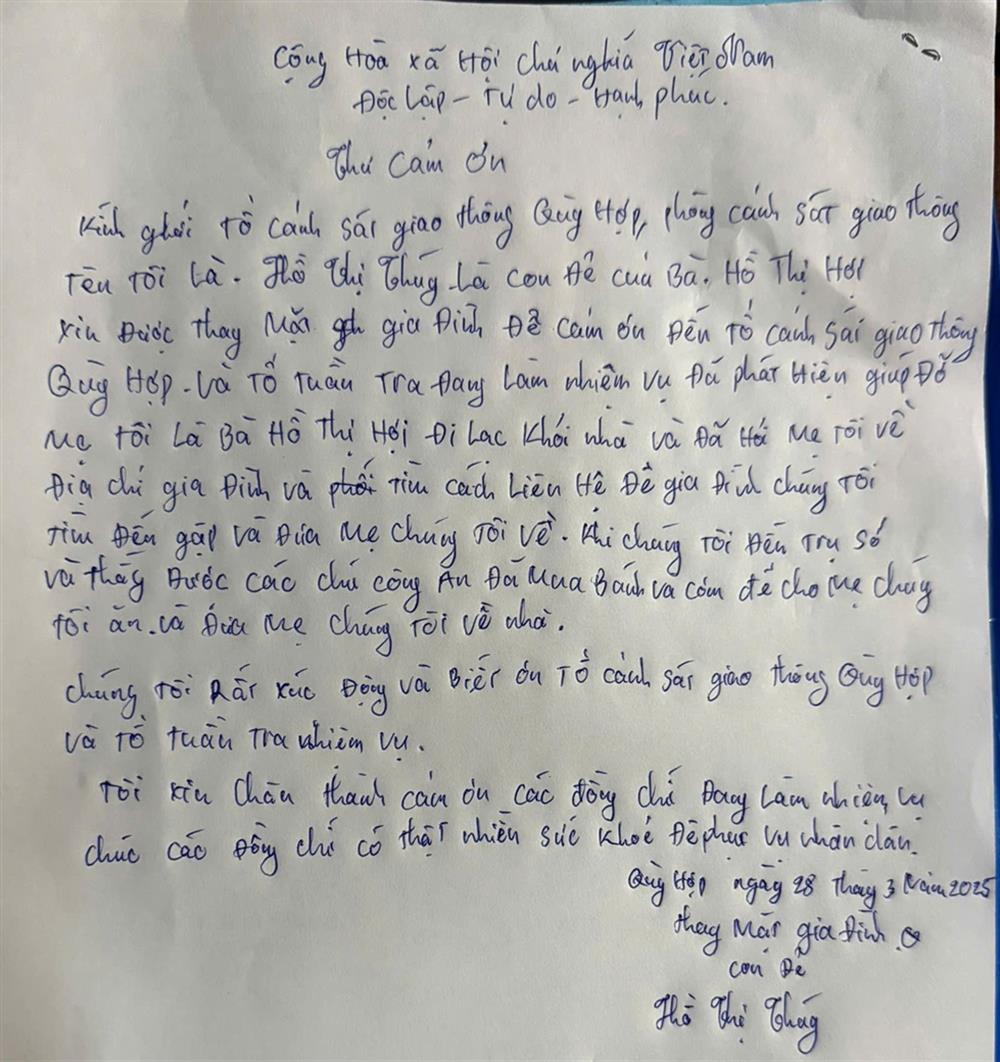 Cộng Hoà xã Hội chủ nghĩa Việt Nam
Độc lập - Tự do - Hạnh phúc.
Thư Cảm Ơn
Kính ghởi Tổ cảnh sát giao thông Quỳ Hợp, phòng cảnh sát giao thông
Tên Tôi Là. Hồ Thị Thủy Là con Đẻ của Bà. Hồ Thị Hợi
xin Được thay Mặt gia Đình Để cảm ơn Đến Tổ cảnh sát giao thông
Quỳ Hợp - Và Tổ Tuần Tra Đang Làm nhiệm vụ Đã phát Hiện giúp Đỡ
Mẹ Tôi Là Bà Hồ Thị Hợi Đi Lạc Khỏi nhà và Đã Hỏi Mẹ Tôi về
Địa chỉ gia Đình và phối tìm cách Liên Hệ Để gia Đình chúng Tôi
Tìm Đến gặp và Đưa Mẹ chúng Tôi Về. Khi chúng Tôi Đến Trụ Sở
và thấy Được các chú công An Đã Mua Bánh và cơm để cho Mẹ chúng
Tôi ăn. và Đưa Mẹ chúng Tôi về nhà.
chúng Tôi Rất xúc Động và Biết ơn Tổ cảnh sát giao thông Quỳ Hợp
và Tổ Tuần Tra nhiệm vụ.
Tôi xin chân thành cảm ơn các đồng chí Đang Làm nhiệm vụ
chúc các Đồng chí có thật nhiều sức khoẻ Để phục vụ nhân dân.
Quỳ Hợp ngày 28 tháng 3 Năm 2025
thay Mặt gia Đình
con Đẻ
Hồ Thị Thủy